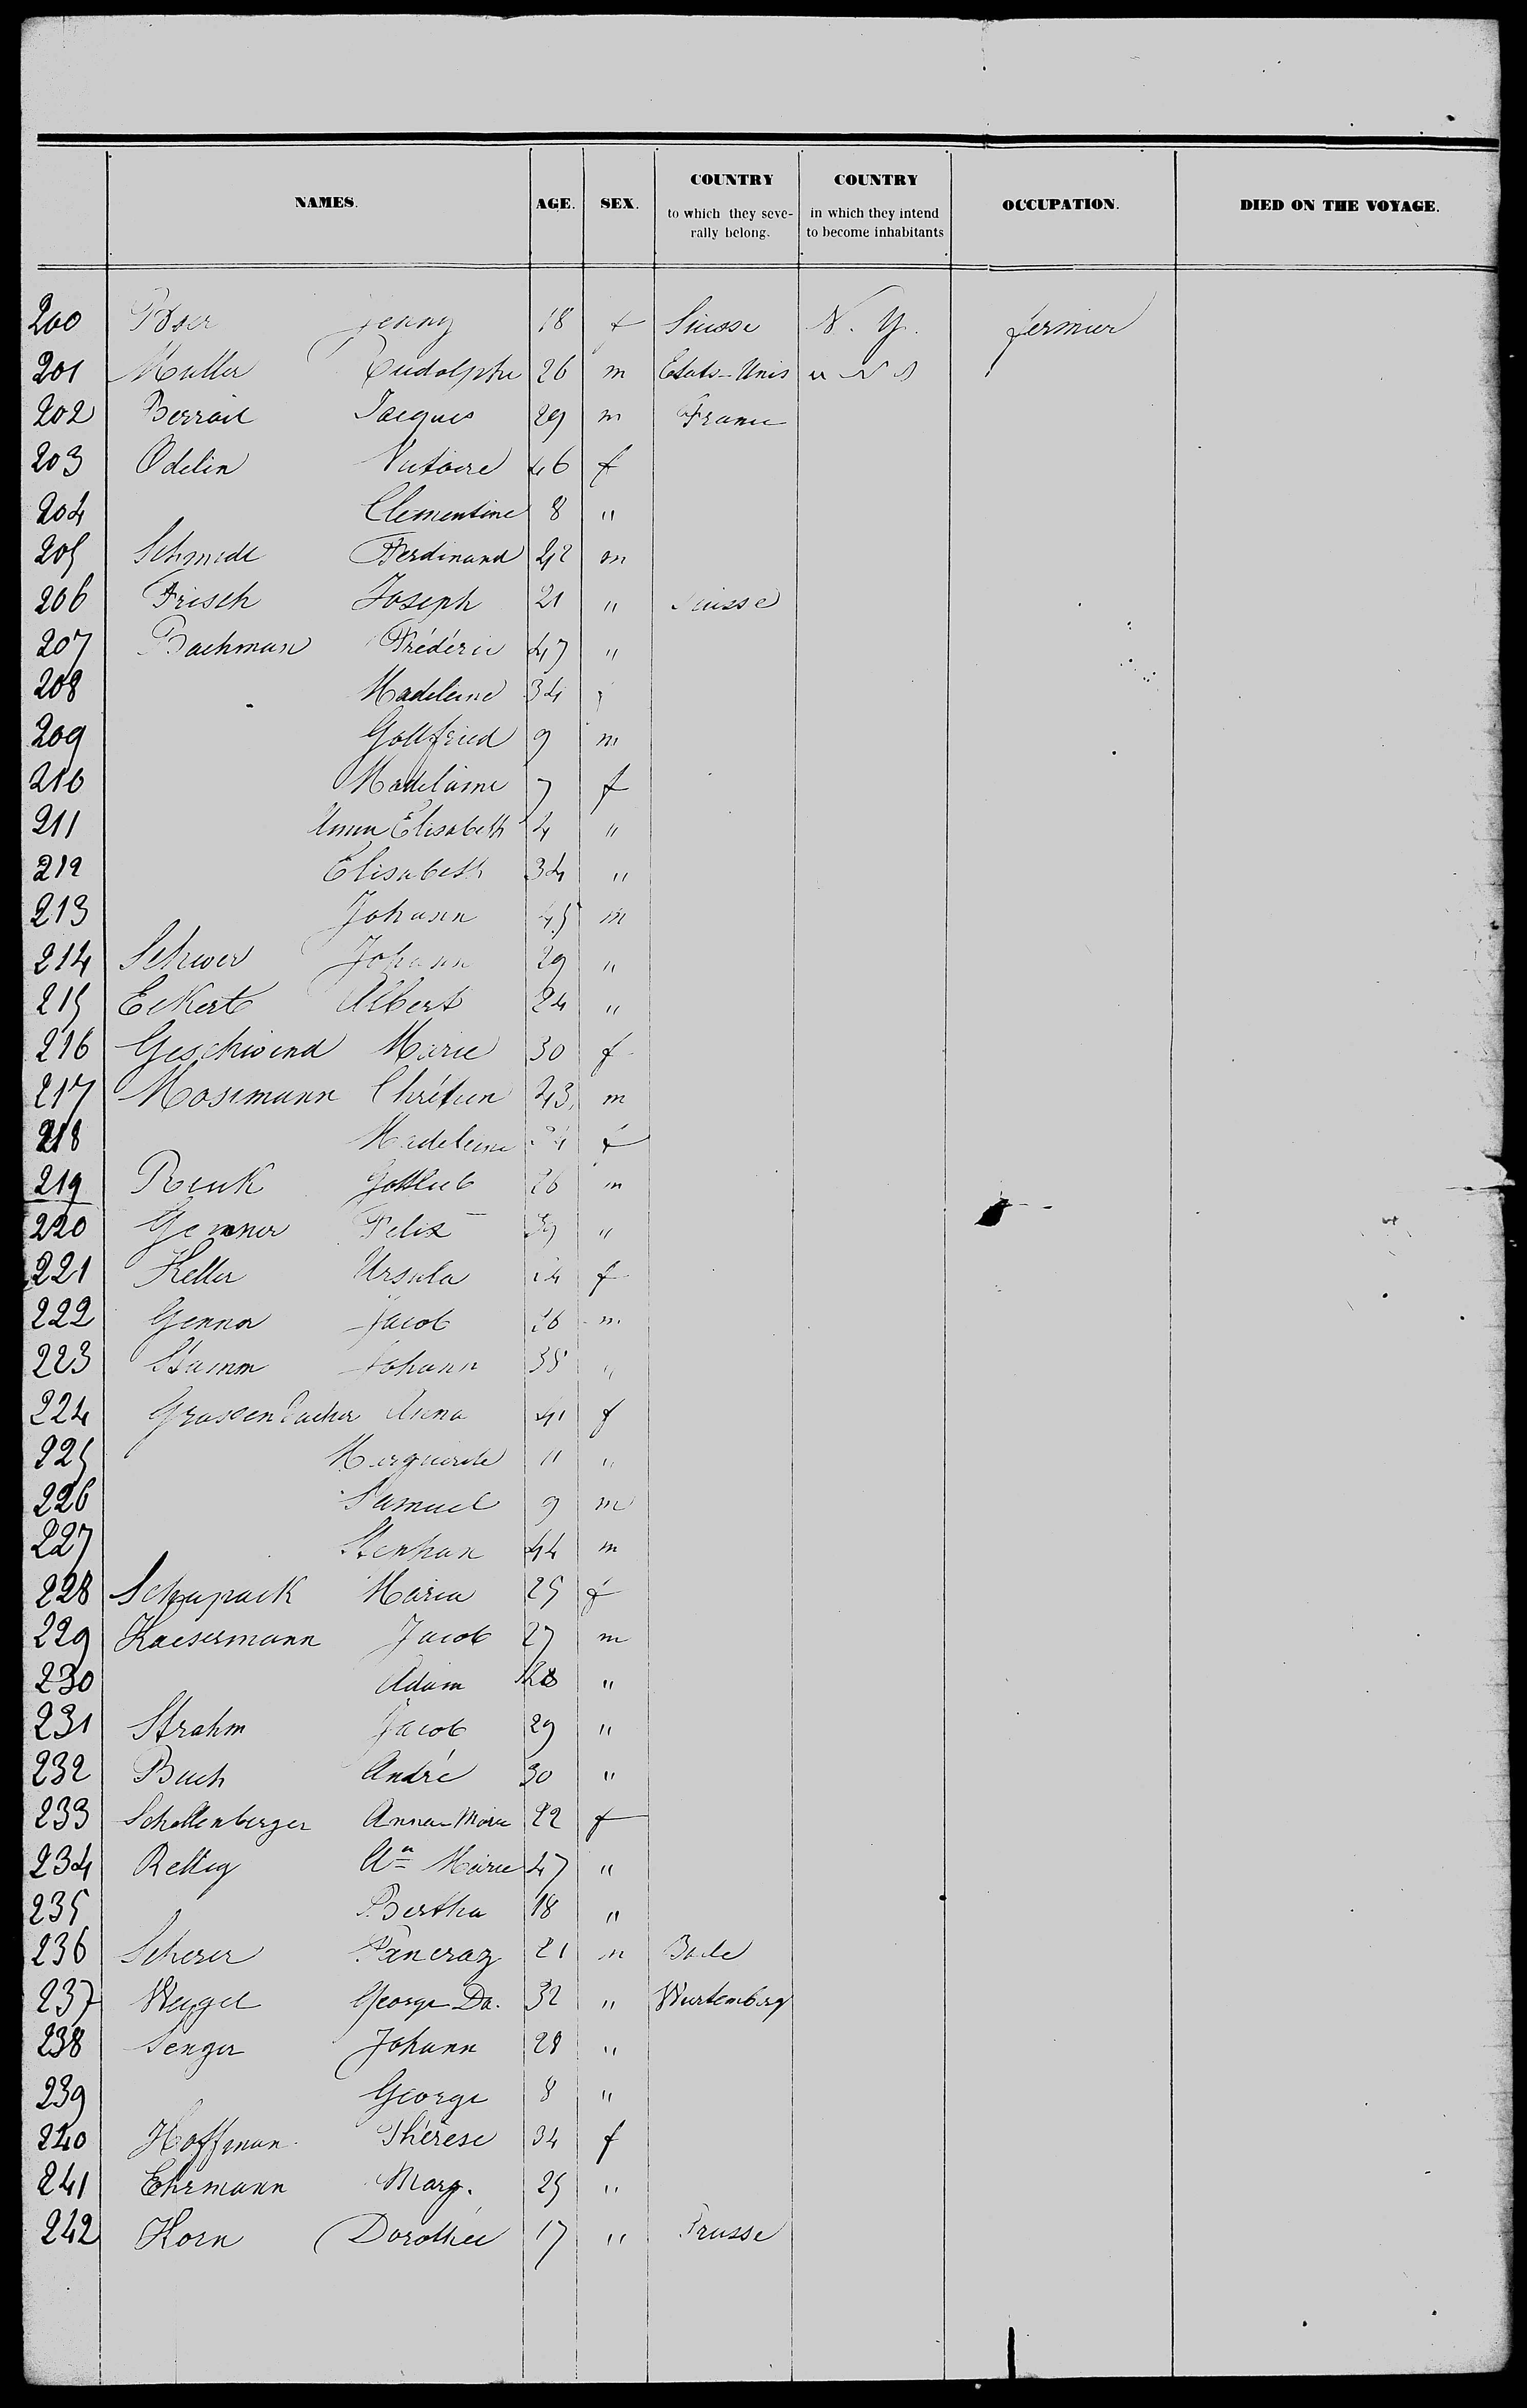 NAMES. AGE. SEX. COUNTRY to which they seve-rally belong. COUNTRY in which they intend to become inhabitants OCCUPATION. DIED ON THE VOYAGE.
200 Poser Jenny 18 f Suisse N. Y. fermier
201 Muller Rudolphe 26 m Etats-Unis
202 Berrail Jacques 29 m France
203 Odelin Victoire 46 f
204 Clementine 8 "
205 Schmidt Ferdinand 42 m
206 Frisch Joseph 21 " Suisse
207 Bachman Frédéric 47 "
208 Madeleine 34
209 Gottfried 9 m
210 Madelaine 7 f
211 Anna Elisabeth 4 "
212 Elisabeth 34 "
213 Johann 45 m
214 Schwer Johann 29 "
215 Eckert Albert 24 "
216 Geschwend Marie 30 f
217 Mosimann Chrétien 43 m
218 Madeleine f
219 Renk Gottlieb 26 m
220 Genner Felix 39 "
221 Keller Ursula f
222 Genner Jacob 26 m
223 Stamm Johann 38 "
224 Grassenbacher Anna 41 f
225 Marguerite 11 "
226 Samuel 9 m
227 Stephan 44 m
228 Schupack Maria 25 f
229 Kaesermann Jacob 27 m
230 Adam 28 "
231 Strahm Jacob 29 "
232 Buch André 30 "
233 Schellenberger Anna Marie 22 f
234 Rettig An Marie 47 "
235 Bertha 18 "
236 Scherer Pancraz 21 m Bade
237 Weigel George Da. 32 " Wurtemberg
238 Senger Johann 28 "
239 George 8 "
240 Hoffman Thérese 34 f
241 Ehrmann Marg. 25 "
242 Horn Dorothée 17 " Prusse